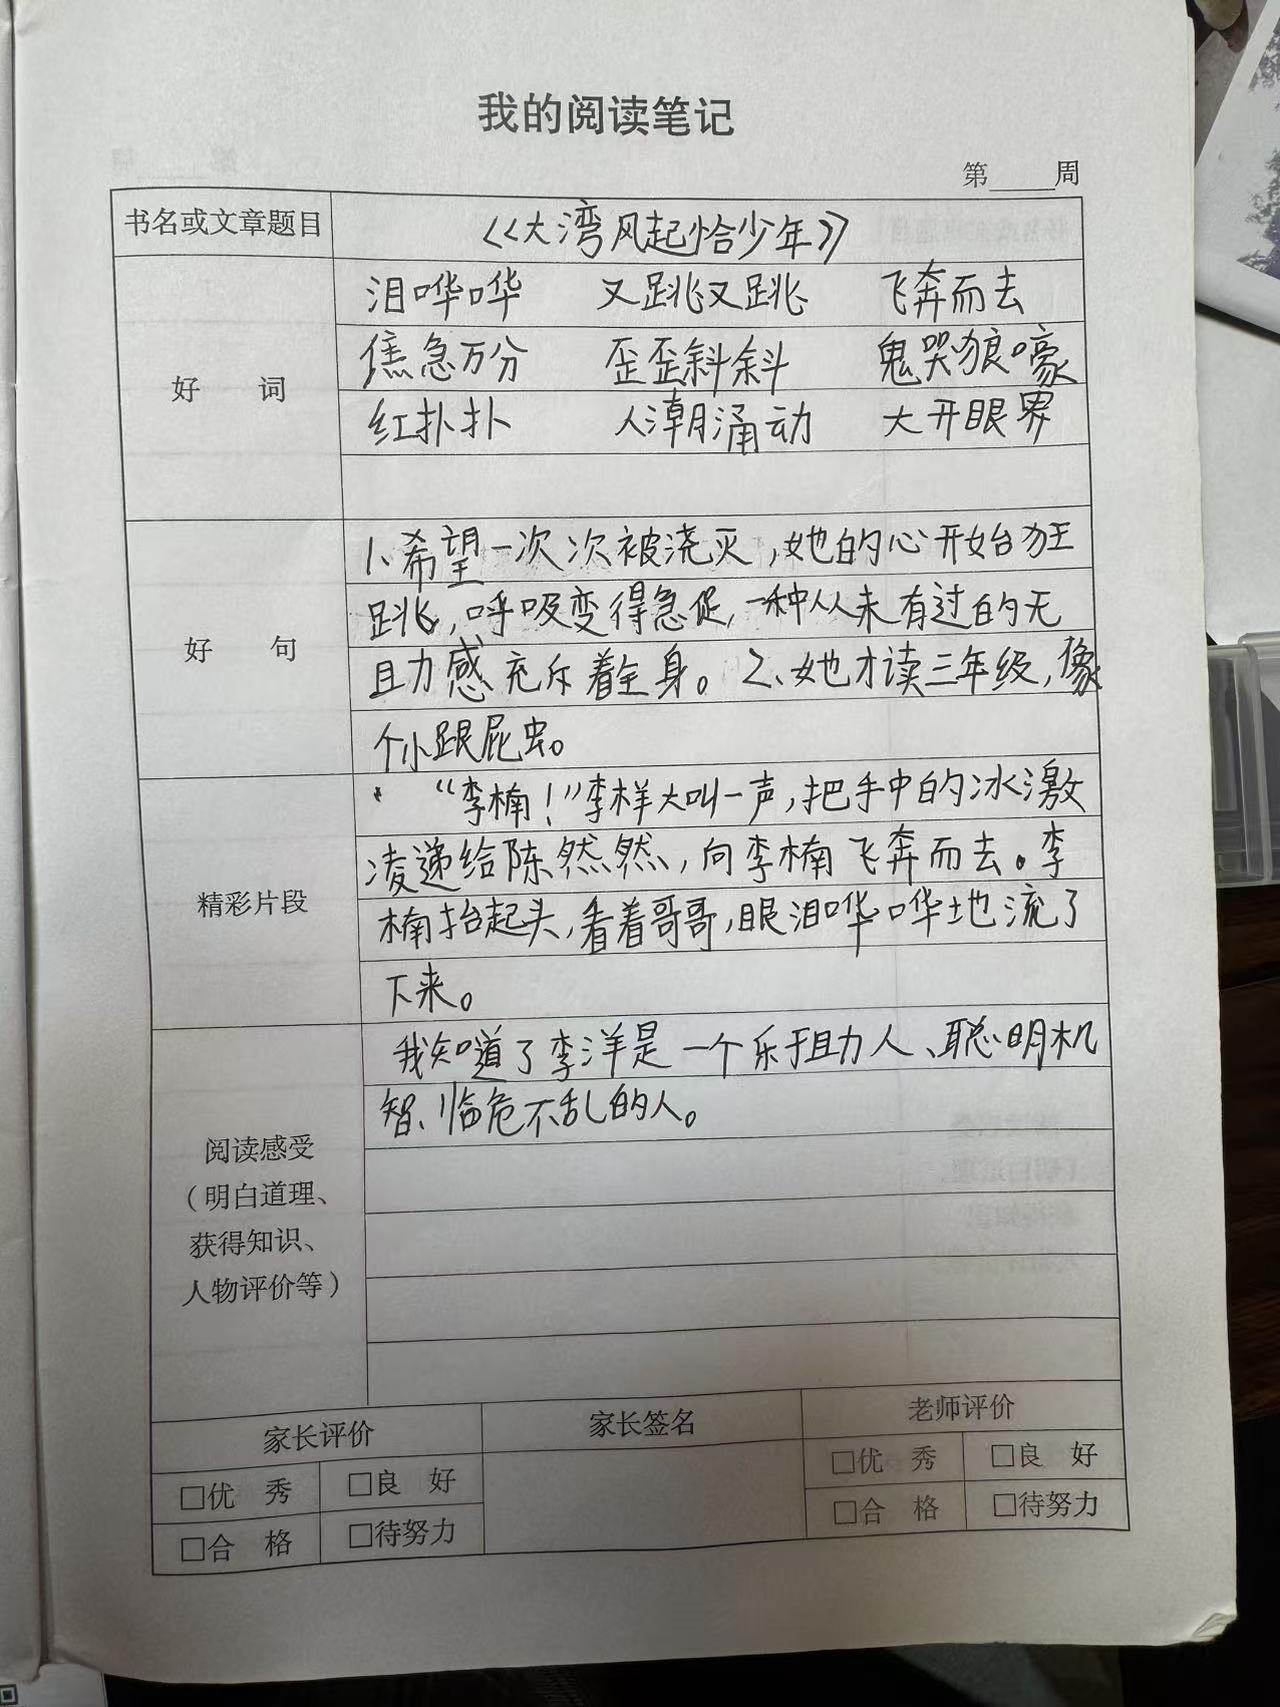 我的阅读笔记
第____周
书名或文章题目 《大湾风起恰少年》
泪哗哗 又跳又跳 飞奔而去
焦急万分 歪歪斜斜 鬼哭狼嚎
好 词
红扑扑 人潮涌动 大开眼界
1.希望一次次被浇灭,她的心开始狂
跳,呼吸变得急促,一种从未有过的无
好 句
助感充斥着全身。2.她才读三年级,像
个小跟屁虫。
“李楠!”李样大叫一声,把手中的冰激
凌递给陈然然,向李楠飞奔而去。李
精彩片段
楠抬起头,看着哥哥,眼泪哗哗地流了
下来。
我知道了李洋是一个乐于助人、聪明机
智、临危不乱的人。
阅读感受
(明白道理、
获得知识、
人物评价等)
家长评价 家长签名 老师评价
□优 秀 □良 好 □优 秀 □良 好
□合 格 □待努力 □合 格 □待努力